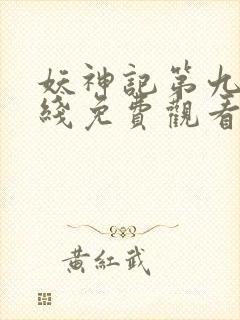 妖神記第九
綫免費觀看
黃紅武